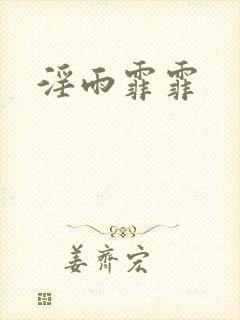 淫雨霏霏
姜齐宏